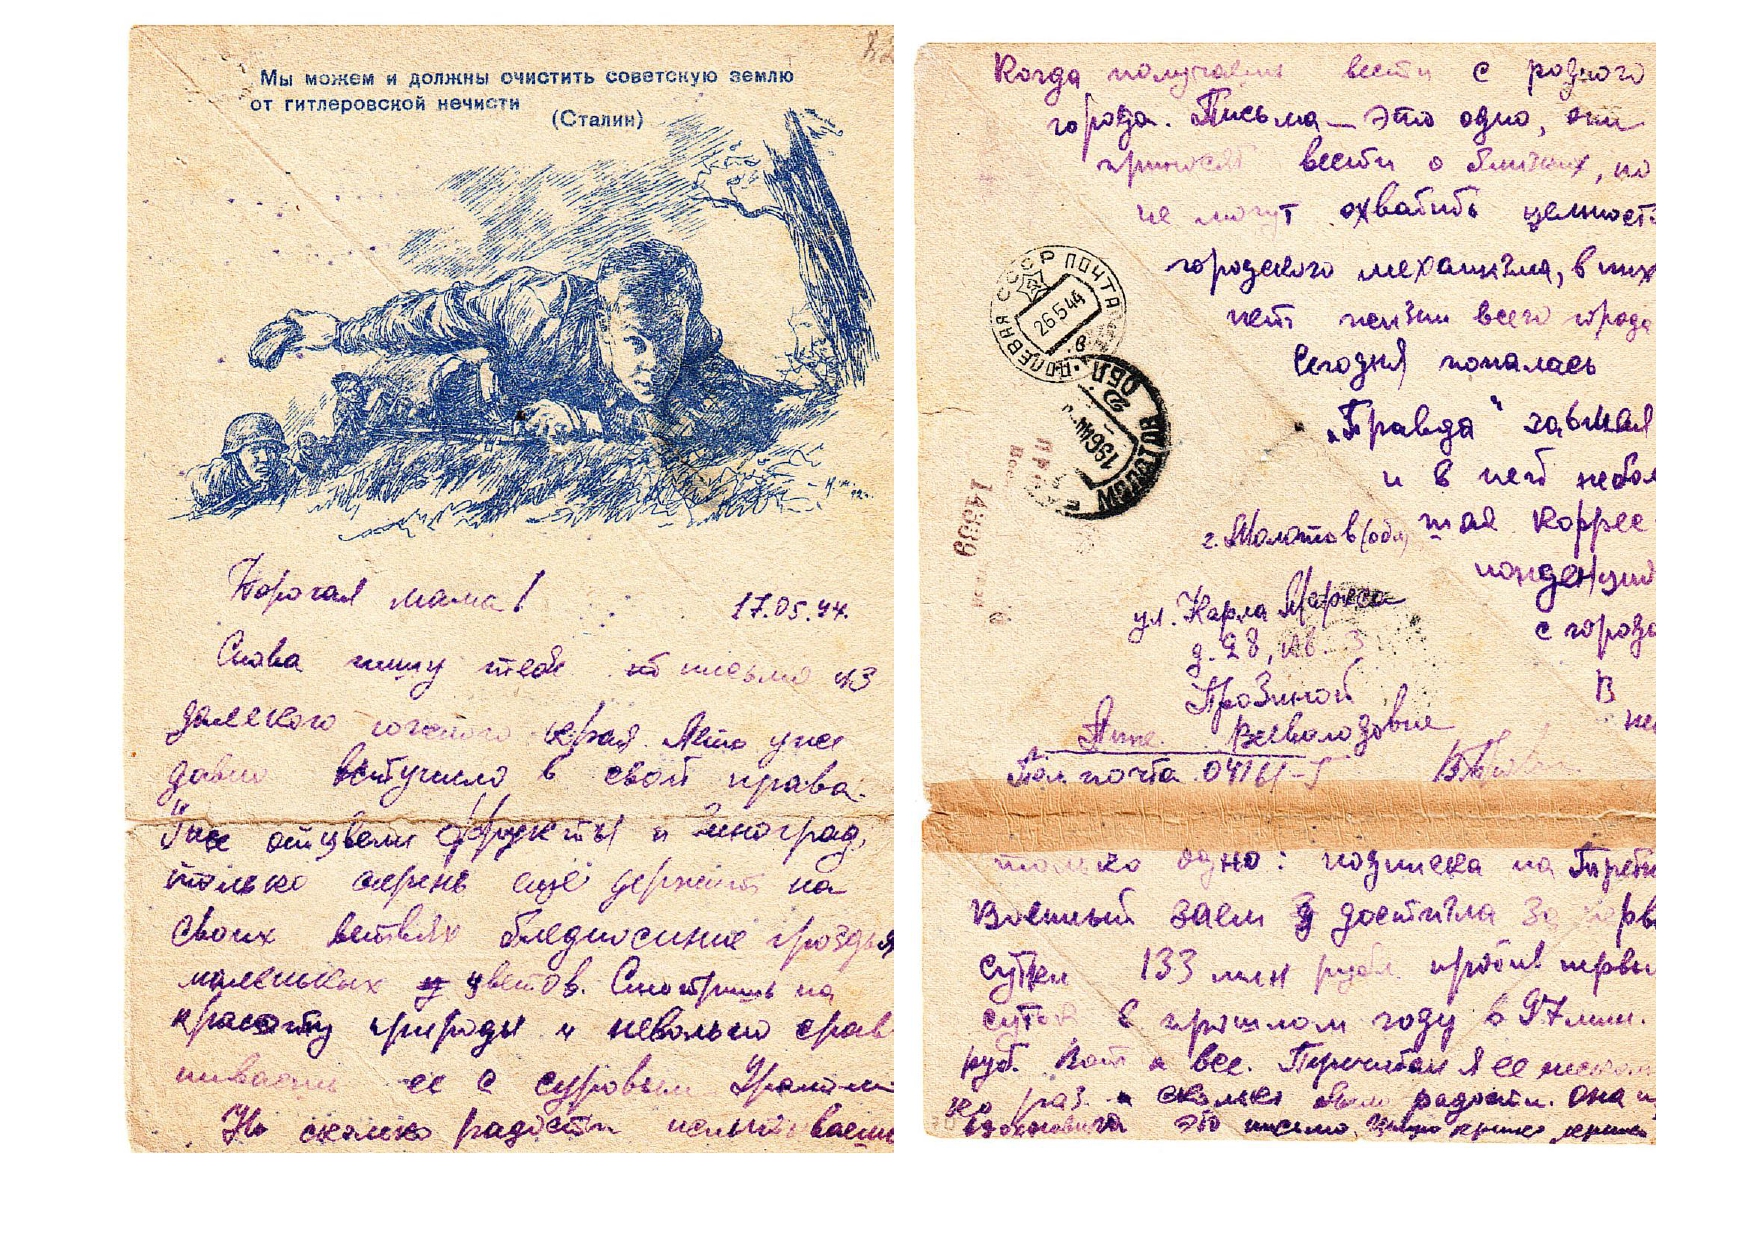 Мы можем и должны очистить советскую землю
от гитлеровской нечисти
(Сталин)
Дорогая мама!
17.05.44.
Снова пишу тебе письмо из
далекого южного края. Лето уже
давно вступило в свои права.
Уже отцвели фрукты и виноград,
только сирень ещё держит на
своих ветвях бледносиние гроздья
маленьких цветов. Смотришь на
красоту природы и невольно срав
ниваешь ее с суровым Уралом.
Но сколько радости испытываешь
Когда получаешь вести с родного
города. Письма — это одно, они
приносят вести о близких, но
не могут охватить цельность
городского механизма, в них
нет жизни всего города
Сегодня попалась
„Правда"
и в ней небол
шая коррес
понденция
с города
В
ней
СССР ПОЧТА
26.5.44
ПОЛЕВАЯ
МОЛОТОВ ОБЛ.
14539
г. Молотов (обл)
ул. Карла Маркса
д. 28, кв. 3
Грозиной
Анне Всеволодовне
Пол почта 04161-Г
только одно: подписка на Третий
Военный заем достигла за перв
сутки 133 млн рубл. против первы
суток в прошлом году в 97 млн.
руб. Вот и все. Перечитал я ее несколь
ко раз и сколько было радости. Она и
вдохновила это письмо. Целую крепко крепко